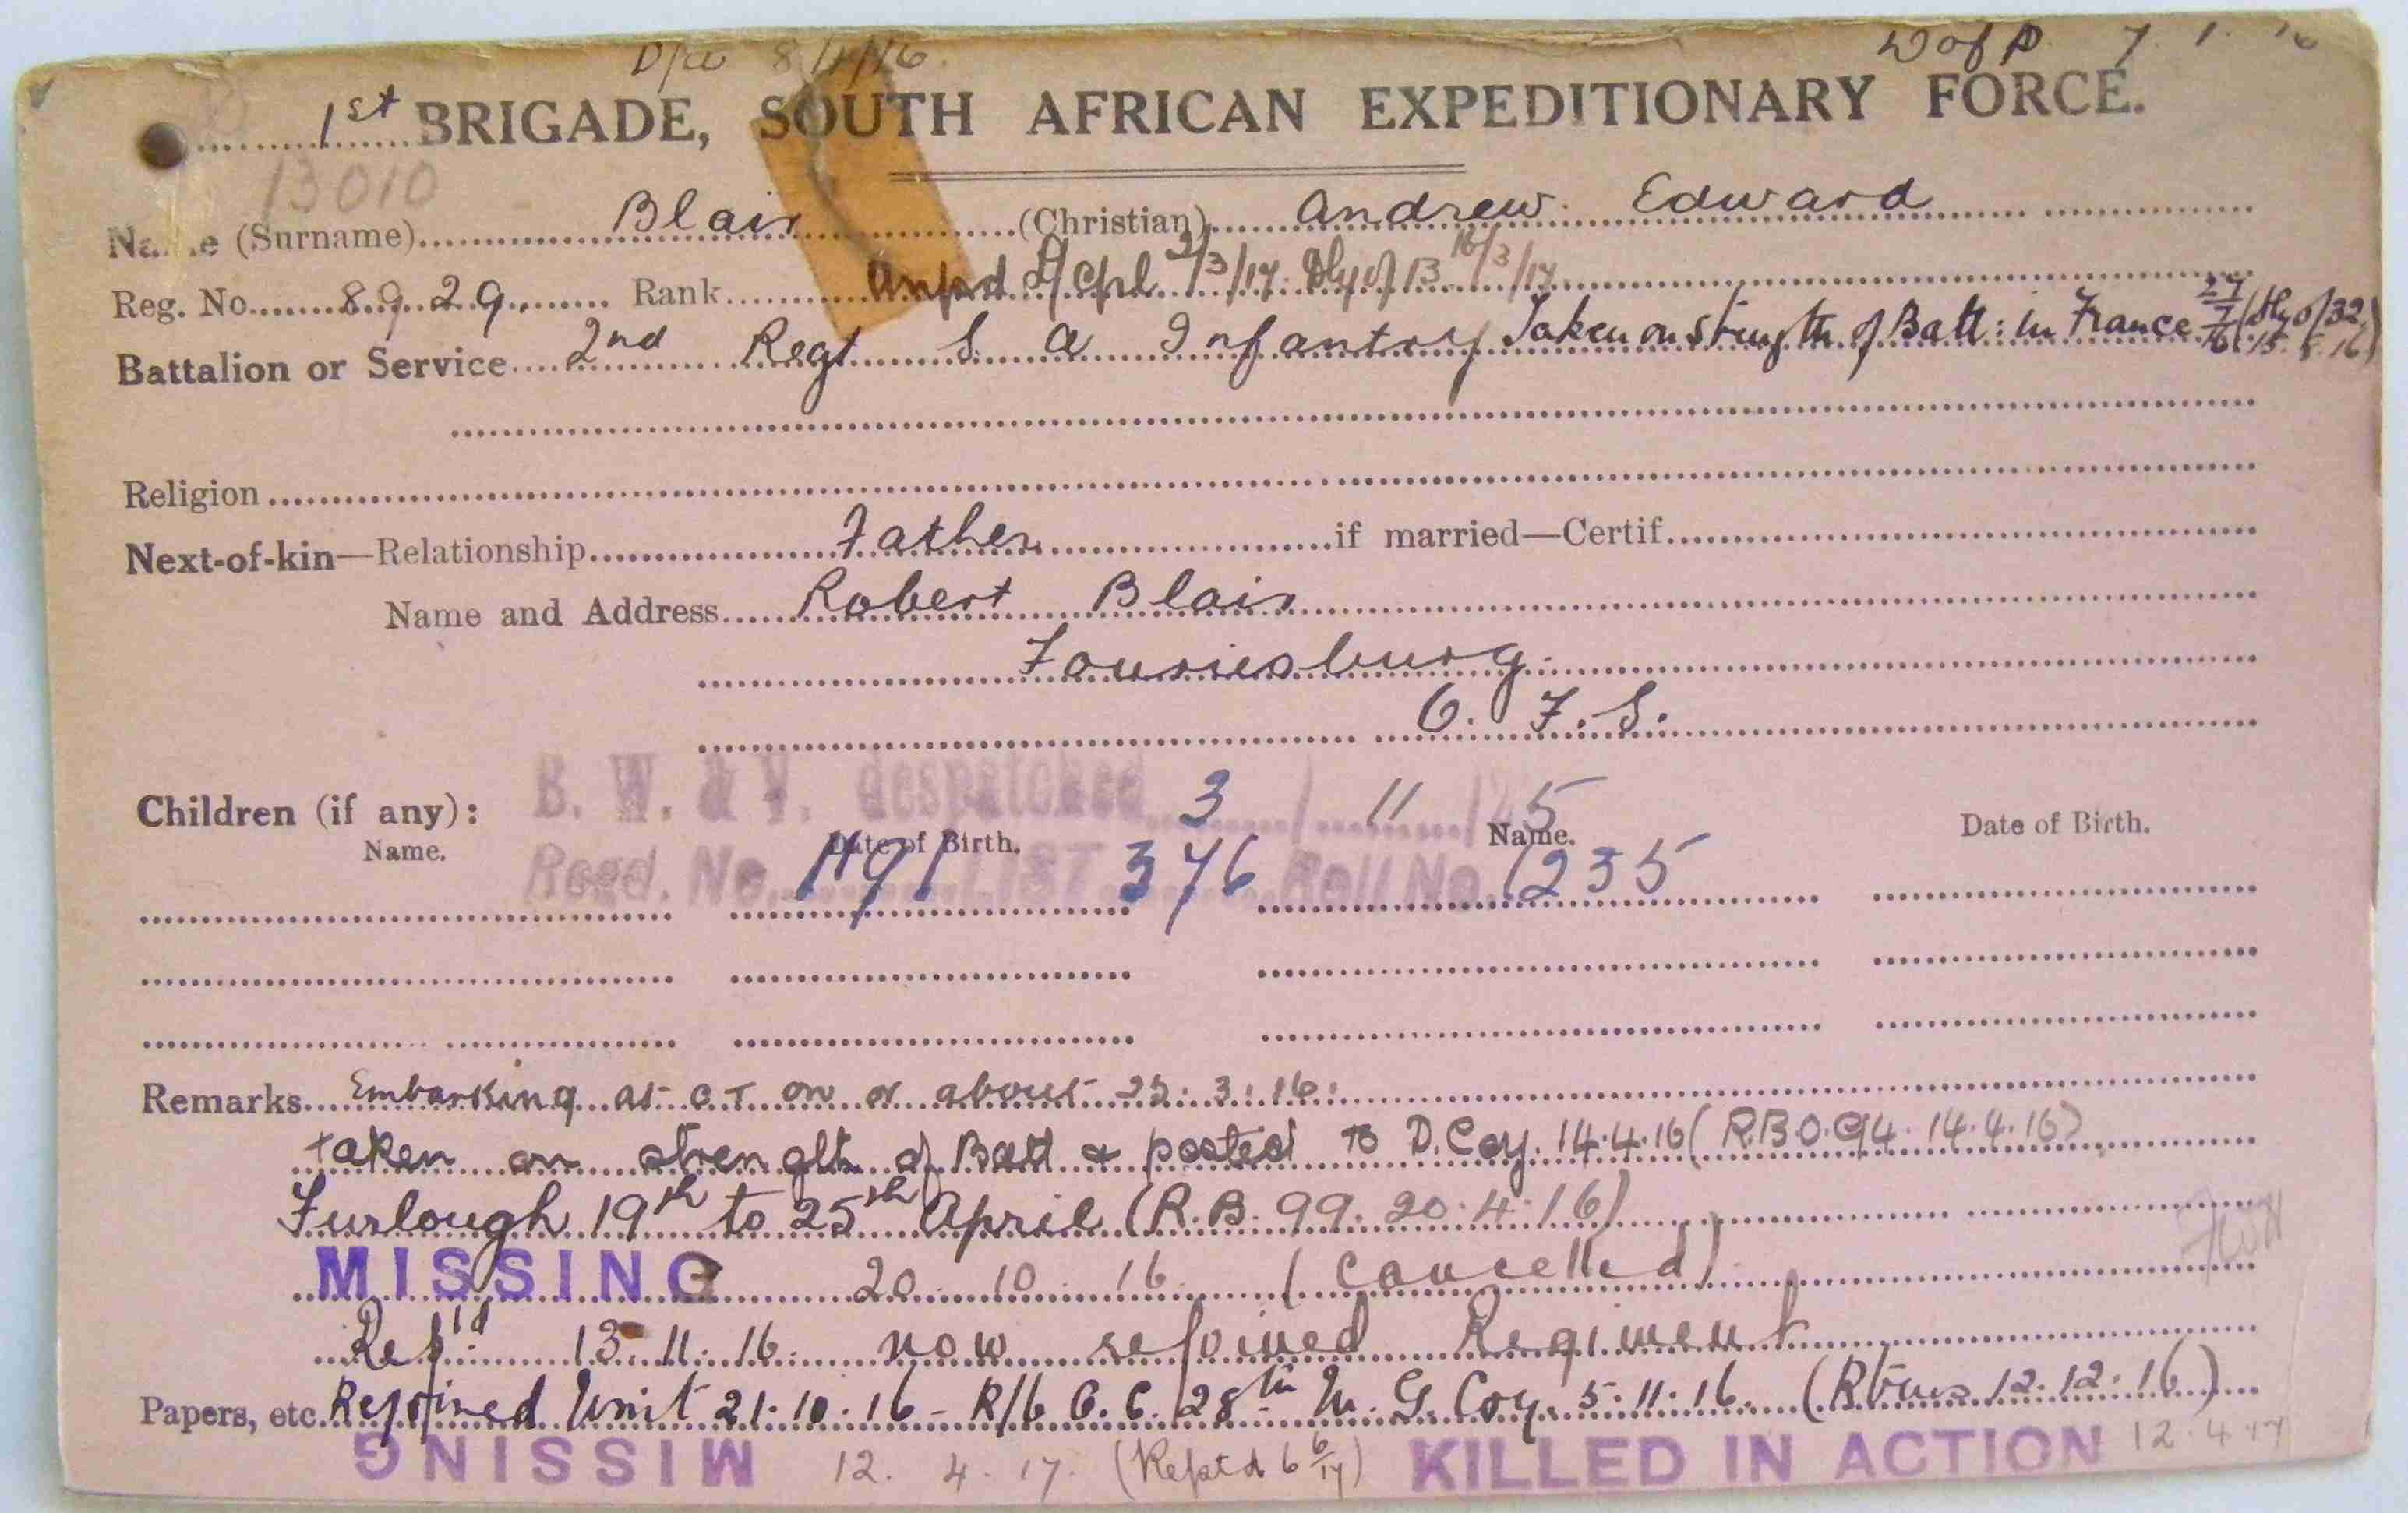 D of P 7. 1. 16
1st BRIGADE, SOUTH AFRICAN EXPEDITIONARY FORCE.
13010
Name (Surname) Blair (Christian) Andrew Edward
Reg. No. 8929. Rank L/Cpl 2/3/17. 13 16/3/17
Battalion or Service 2nd Regt S. A Infantry Taken on strength of Batt: in France 27/7/16 (32 15.8.16)
Religion
Next-of-kin—Relationship Father if married—Certif.
Name and Address Robert Blair
Fouriesburg
O. F. S.
B. W. & V. despatched 3 / 11 / 25
Children (if any):
Name. Date of Birth. Name. Date of Birth.
Regd. No. 1491 LIST 376 Roll No. 1235
Remarks Embarking at C T on or about 25.3.16.
taken on strength of Batt & posted to D. Coy. 14.4.16 (R.B.O. 94. 14.4.16)
Furlough 19th to 25th April (R.B. 99. 20.4.16)
MISSING 20 . 10 . 16. (Cancelled)
Rep'd 13.11.16. now rejoined Regiment
Papers, etc. Rejoined Unit 21.10.16 - O.C. 28th M. G. Coy. 5.11.16. 12.12.16)
MISSING 12. 4. 17. (Reptd 6 6/17) KILLED IN ACTION 12.4.17